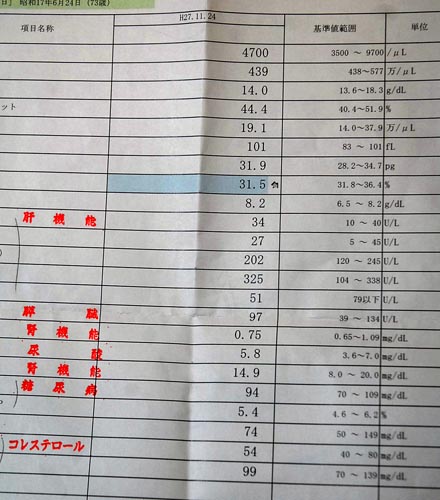 日」 昭和17年6月24日 (73歳)
H27.11.24
項目名称 基準値範囲 単位
4700 3500 ~ 9700 /μL
439 438~577 万/μL
14.0 13.6~18.3 g/dL
ット 44.4 40.4~51.9 %
19.1 14.0~37.9 万/μL
101 83 ~ 101 fL
31.9 28.2~34.7 pg
31.5 31.8~36.4 %
8.2 6.5 ~ 8.2 g/dL
肝機能 34 10 ~ 40 U/L
27 5 ~ 45 U/L
202 120 ~ 245 U/L
325 104 ~ 338 U/L
51 79以下 U/L
膵臓 97 39 ~ 134 U/L
腎機能 0.75 0.65~1.09 mg/dL
尿酸 5.8 3.6~7.0 mg/dL
腎機能 14.9 8.0 ~ 20.0 mg/dL
糖尿病 94 70 ~ 109 mg/dL
5.4 4.6 ~ 6.2 %
74 50 ~ 149 mg/dL
コレステロール 54 40 ~ 80 mg/dL
99 70 ~ 139 mg/dL